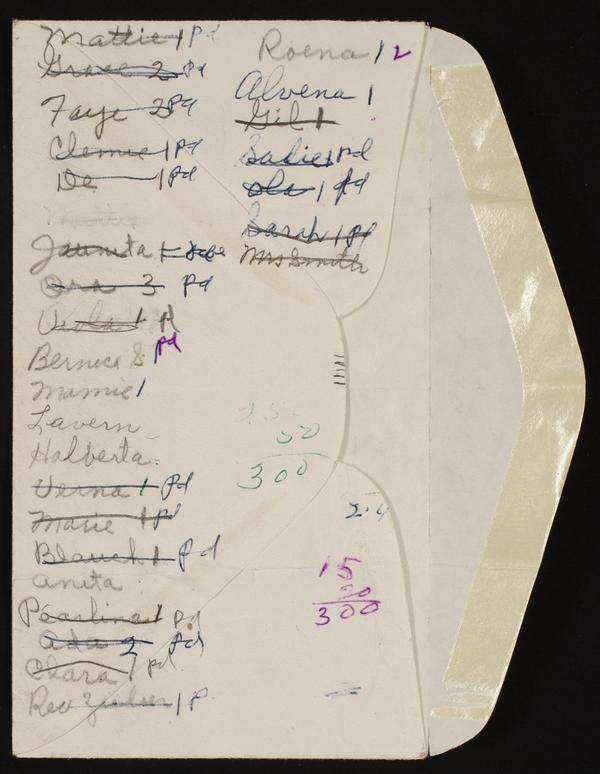 Mattie 1 Pd
Grace 2 Pd
Faye 2 Pd
Clemie 1 Pd
De 1 Pd
Mattie
Jaunita 1
Ora 3 Pd
Viola 1 Pd
Bernice S. Pd
Mamie 1
Lavern
Halberta
Verna 1 Pd
Marie 1 Pd
Blanch 1 Pd
Anita
Pearlina 1 Pd
Ada 2 Pd
Clara 1 Pd
Rev 1 P
Roena 1 2
Alvena 1
Gil 1
Sadie 1 Pd
Ola 1 Pd
Sarah 1 Pd
Mrs Smith
25
50
300
2.4
15
20
300